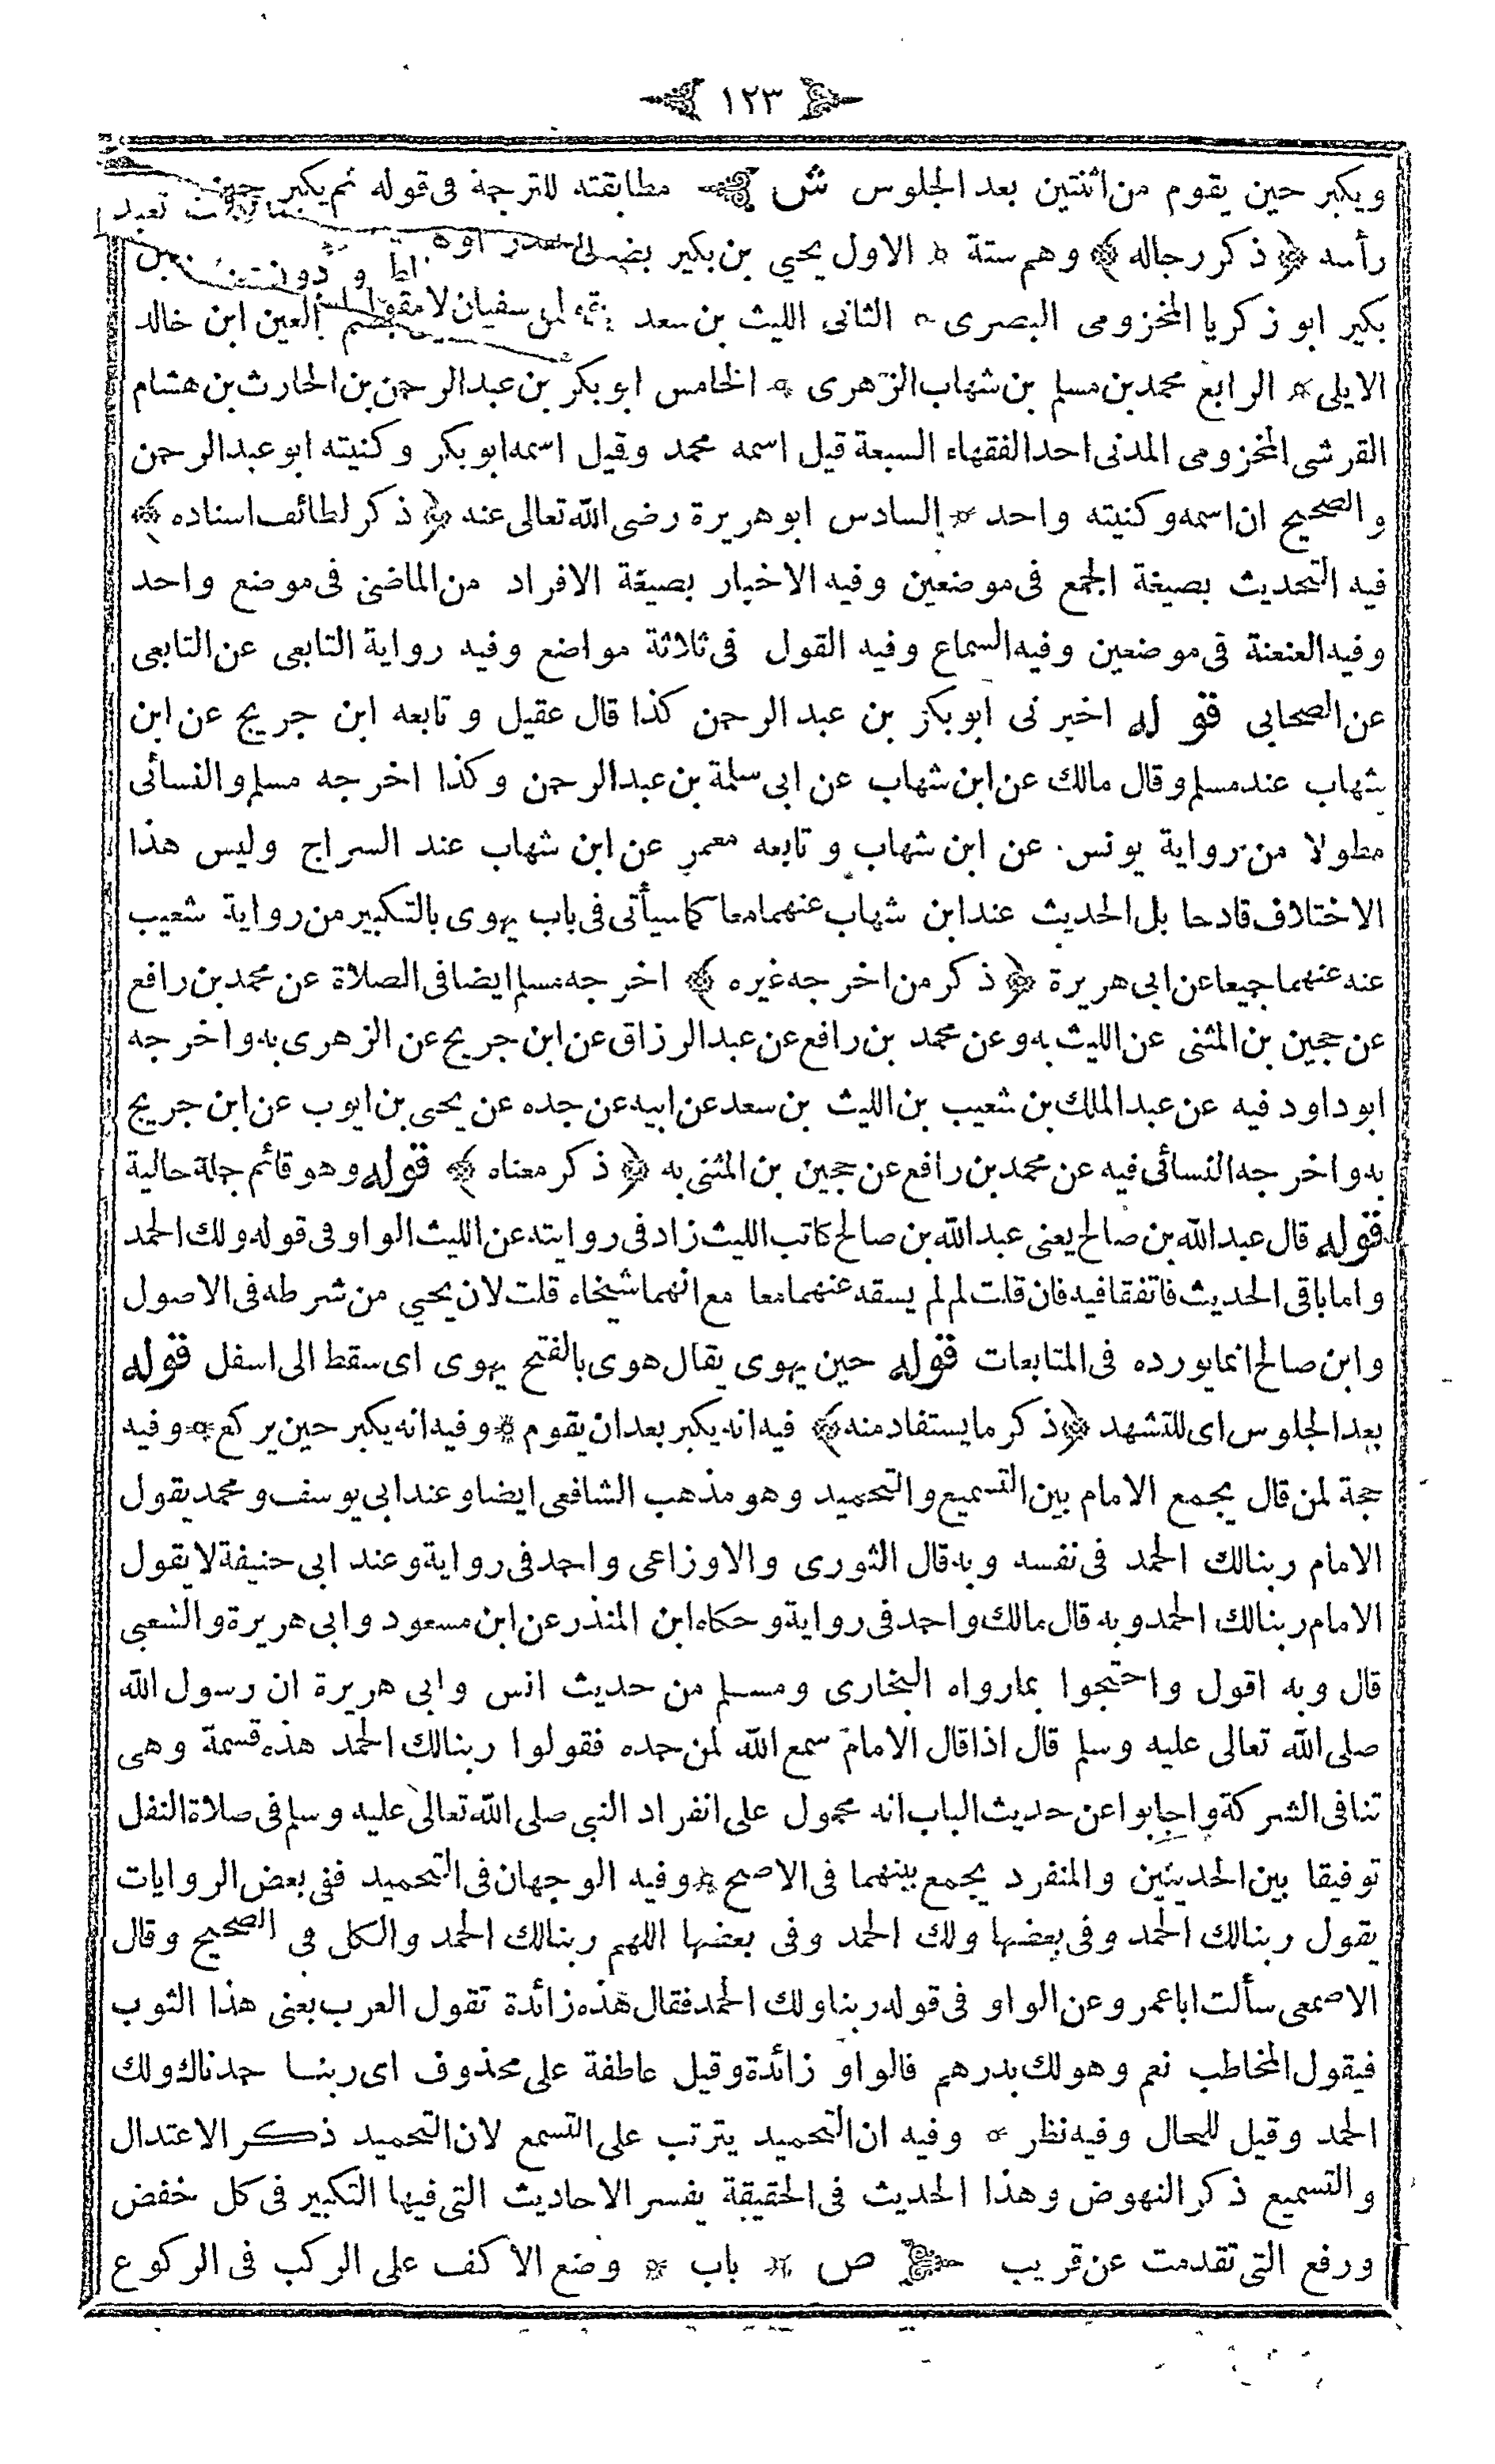 ١٢٣
ويكبر حين يقوم من اثنتين بعد الجلوس ش مطابقته للترجة فى قوله ثم يكبر حين
رأسه ﴿ ذكر رجاله ﴾ وهم ستة * الاول يحيي بن بكير
بكير ابو زكريا المخزومى البصرى * الثانى الليث بن سعد العين ابن خالد
الايلى * الرابع محمد بن مسلم بن شهاب الزهرى * الخامس ابو بكر بن عبد الرحمن بن الحارث بن هشام
القرشى المخزومى المدنى احد الفقهاء السبعة قيل اسمه محمد وقيل اسمه ابو بكر وكنيته ابو عبد الرحمن
والصحيح ان اسمه وكنيته واحد * السادس ابو هريرة رضى الله تعالى عنه ﴿ ذكر لطائف اسناده ﴾
فيه التحديث بصيغة الجمع فى موضعين وفيه الاخبار بصيغة الافراد من الماضى فى موضع واحد
وفيه العنعنة فى موضعين وفيه السماع وفيه القول فى ثلاثة مواضع وفيه رواية التابعى عن التابعى
عن الصحابى قوله اخبرنى ابو بكر بن عبد الرحمن كذا قال عقيل وتابعه ابن جريج عن ابن
شهاب عند مسلم وقال مالك عن ابن شهاب عن ابى سلمة بن عبد الرحمن وكذا اخرجه مسلم والنسائى
مطولا من رواية يونس عن ابن شهاب وتابعه معمر عن ابن شهاب عند السراج وليس هذا
الاختلاف قادحا بل الحديث عند ابن شهاب عنهما معا كما سيأتى فى باب يهوى بالتكبير من رواية شعيب
عنه عنهما جميعا عن ابى هريرة ﴿ ذكر من اخرجه غيره ﴾ اخرجه مسلم ايضا فى الصلاة عن محمد بن رافع
عن حجين بن المثنى عن الليث به وعن محمد بن رافع عن عبد الرزاق عن ابن جريج عن الزهرى به واخرجه
ابو داود فيه عن عبد الملك بن شعيب بن الليث بن سعد عن ابيه عن جده عن يحيى بن ايوب عن ابن جريج
به واخرجه النسائى فيه عن محمد بن رافع عن حجين بن المثنى به ﴿ ذكر معناه ﴾ قوله وهو قائم جلة حالية
قوله قال عبد الله بن صالح يعنى عبد الله بن صالح كاتب الليث زاد فى روايته عن الليث الواو فى قوله ولك الحمد
واما باقى الحديث فاتفقا فيه فان قلت لم لم يسقه عنهما معا مع انهما شيخاه قلت لان يحيي من شرطه فى الاصول
وابن صالح انما يورده فى المتابعات قوله حين يهوى يقال هوى بالفتح يهوى اى سقط الى اسفل قوله
بعد الجلوس اى للتشهد ﴿ ذكر ما يستفاد منه ﴾ فيه انه يكبر بعد ان يقوم * وفيه انه يكبر حين يركع * وفيه
حجة لمن قال يجمع الامام بين التسميع والتحميد وهو مذهب الشافعى ايضا وعند ابى يوسف ومحمد يقول
الامام ربنا لك الحمد فى نفسه وبه قال الثورى والاوزاعى واحمد فى رواية وعند ابى حنيفة لا يقول
الامام ربنا لك الحمد وبه قال مالك واحمد فى رواية وحكاه ابن المنذر عن ابن مسعود وابى هريرة والشعبى
قال وبه اقول واحتجوا بما رواه البخارى ومسلم من حديث انس وابى هريرة ان رسول الله
صلى الله تعالى عليه وسلم قال اذا قال الامام سمع الله لمن حمده فقولوا ربنا لك الحمد هذه قسمة وهى
تنافى الشركة واجابوا عن حديث الباب انه محمول على انفراد النبى صلى الله تعالى عليه وسلم فى صلاة النفل
توفيقا بين الحديثين والمنفرد يجمع بينهما فى الاصح * وفيه الوجهان فى التحميد ففى بعض الروايات
يقول ربنا لك الحمد وفى بعضها ولك الحمد وفى بعضها اللهم ربنا لك الحمد والكل فى الصحيح وقال
الاصمعى سألت ابا عمرو عن الواو فى قوله ربنا ولك الحمد فقال هذه زائدة تقول العرب بعنى هذا الثوب
فيقول المخاطب نعم وهو لك بدرهم فالواو زائدة وقيل عاطفة على محذوف اى ربنا حمدناك ولك
الحمد وقيل للحال وفيه نظر * وفيه ان التحميد يترتب على التسمع لان التحميد ذكر الاعتدال
والتسميع ذكر النهوض وهذا الحديث فى الحقيقة يفسر الاحاديث التى فيها التكبير فى كل خفض
ورفع التى تقدمت عن قريب ص * باب * وضع الاكف على الركب فى الركوع